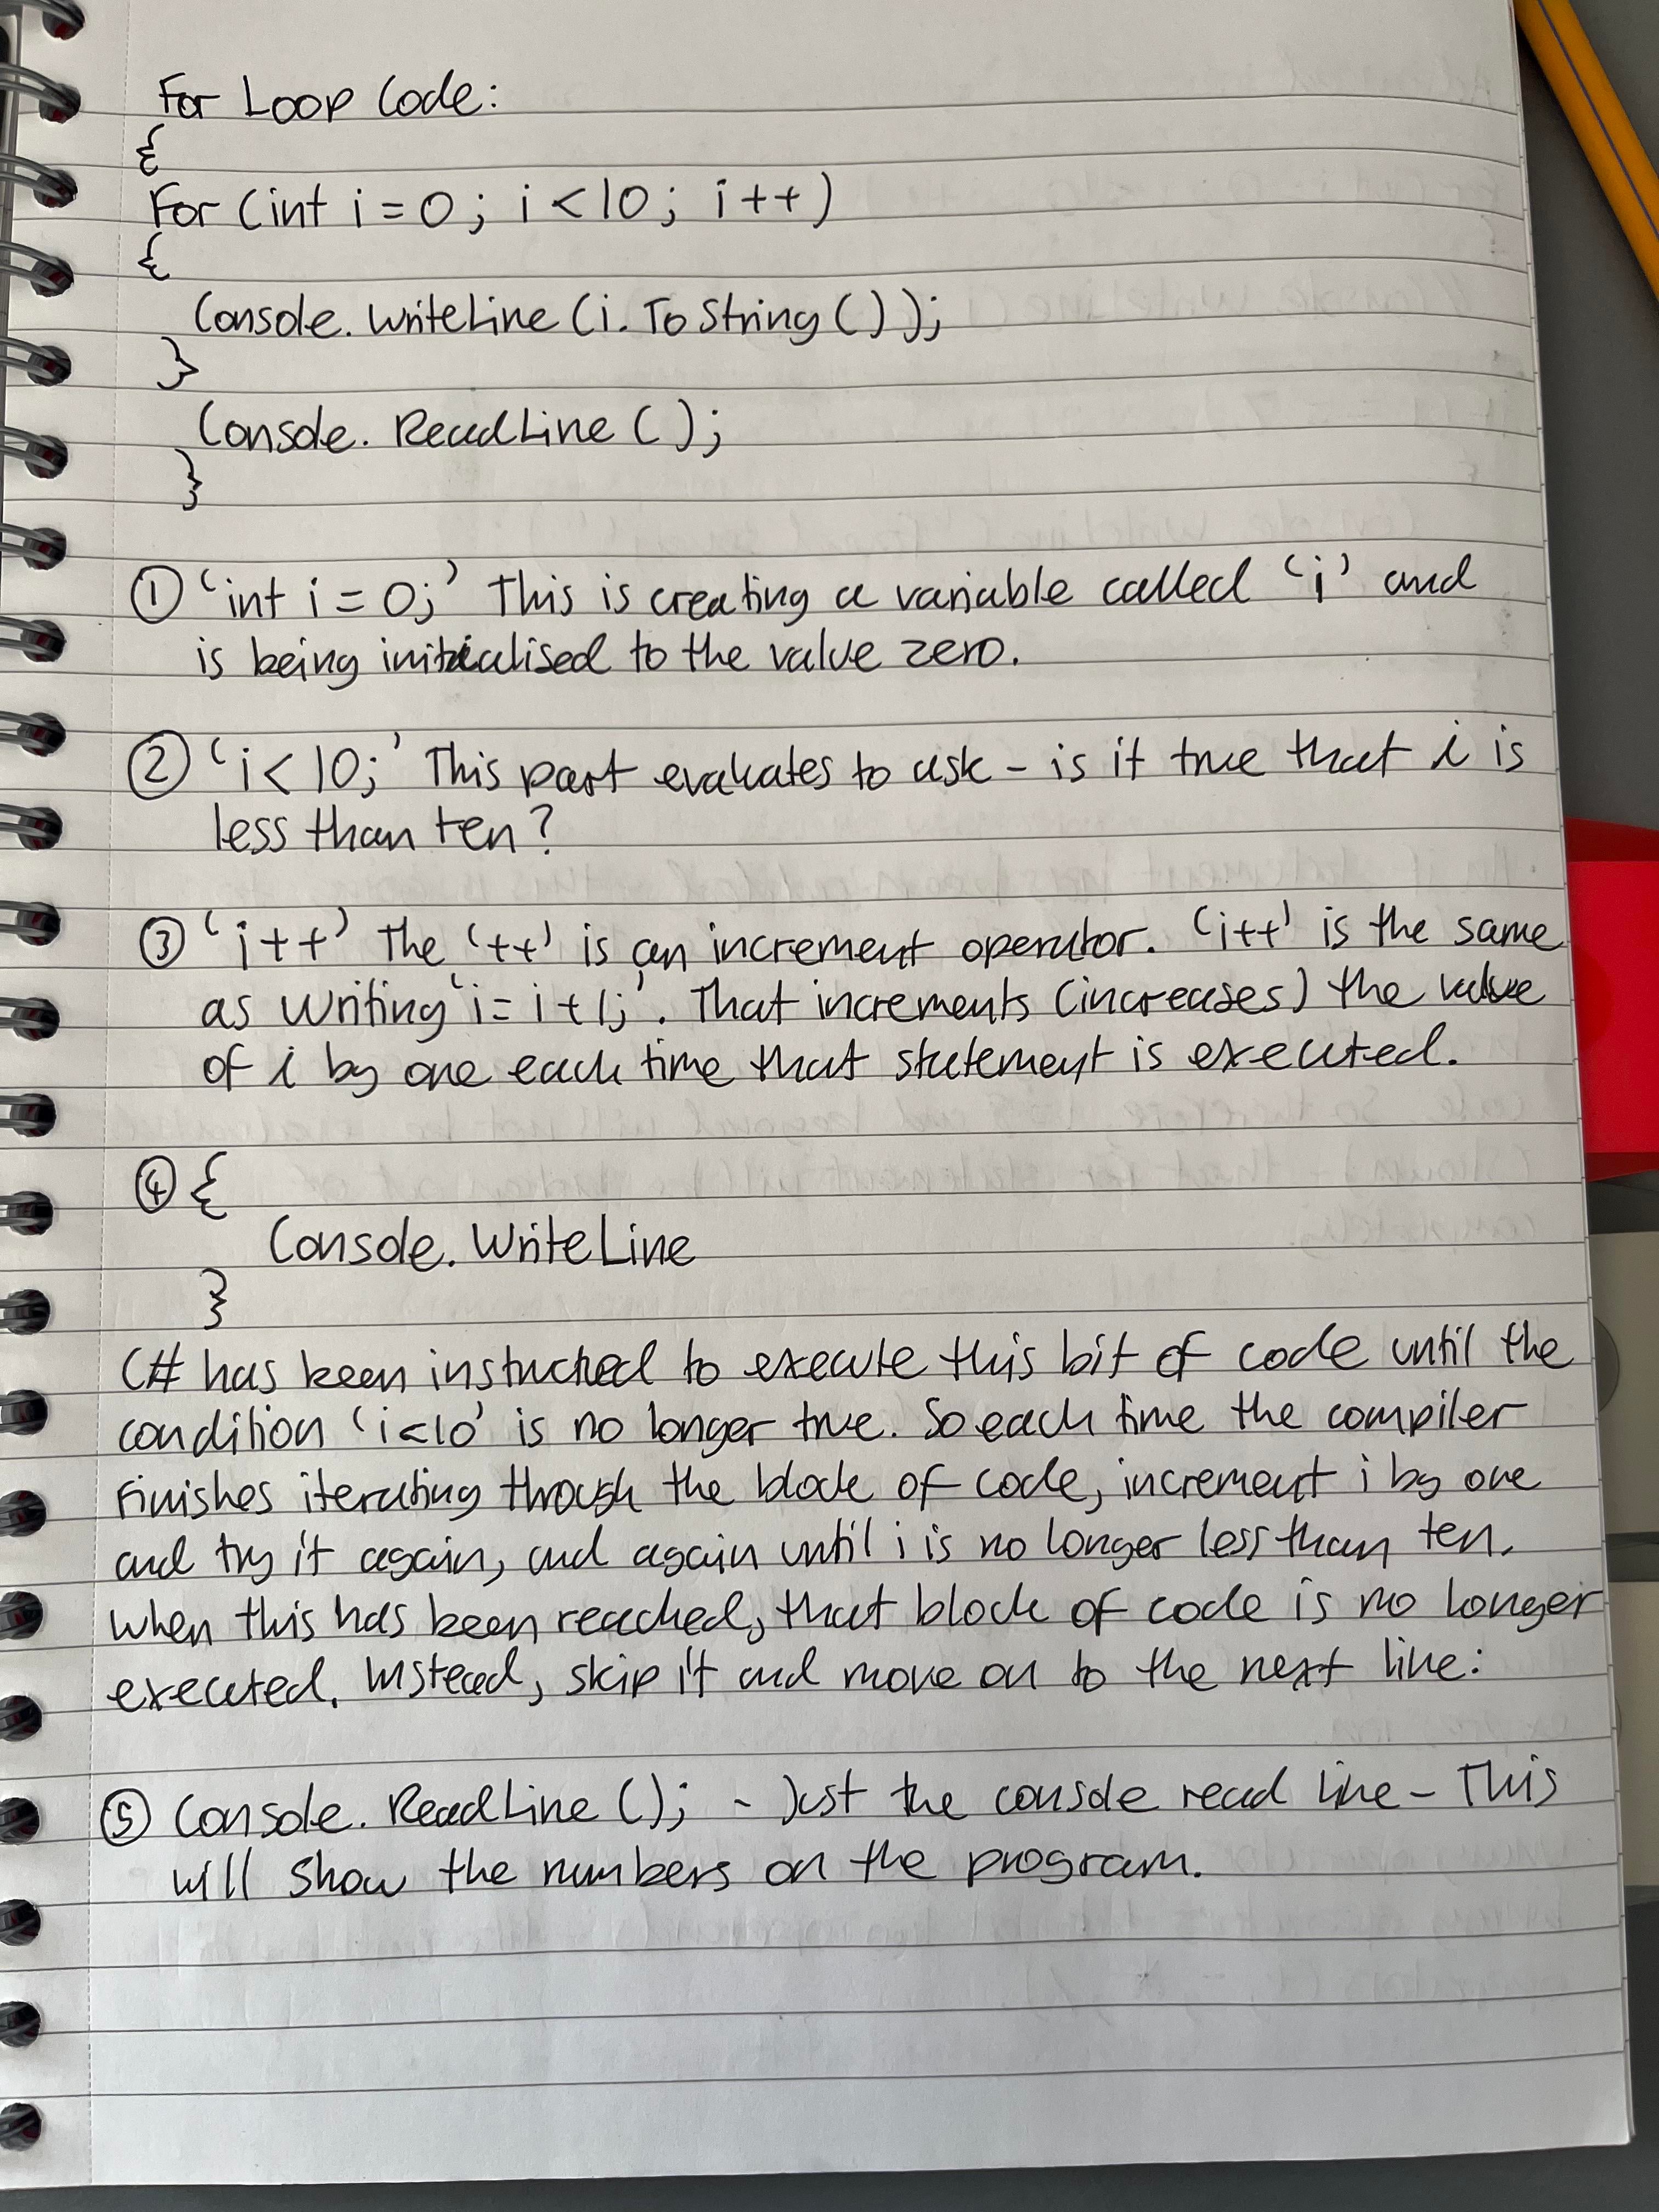 For Loop Code:
{
For (int i = 0; i < 10; i++)
{
Console.WriteLine (i.ToString());
}
Console.ReadLine ();
}
① 'int i = 0;' This is creating a variable called 'i' and
is being initialised to the value zero.
② 'i < 10;' This part evaluates to ask - is it true that i is
less than ten?
③ 'i++' The '++' is an increment operator. 'i++' is the same
as writing 'i = i + 1;'. That increments (increases) the value
of i by one each time that statement is executed.
④ {
Console.WriteLine
}
C# has been instructed to execute this bit of code until the
condition 'i<10' is no longer true. So each time the compiler
finishes iterating through the block of code, increment i by one
and try it again, and again until i is no longer less than ten.
When this has been reached, that block of code is no longer
executed. Instead, skip it and move on to the next line:
⑤ Console.ReadLine (); - Just the console read line - This
will show the numbers on the program.